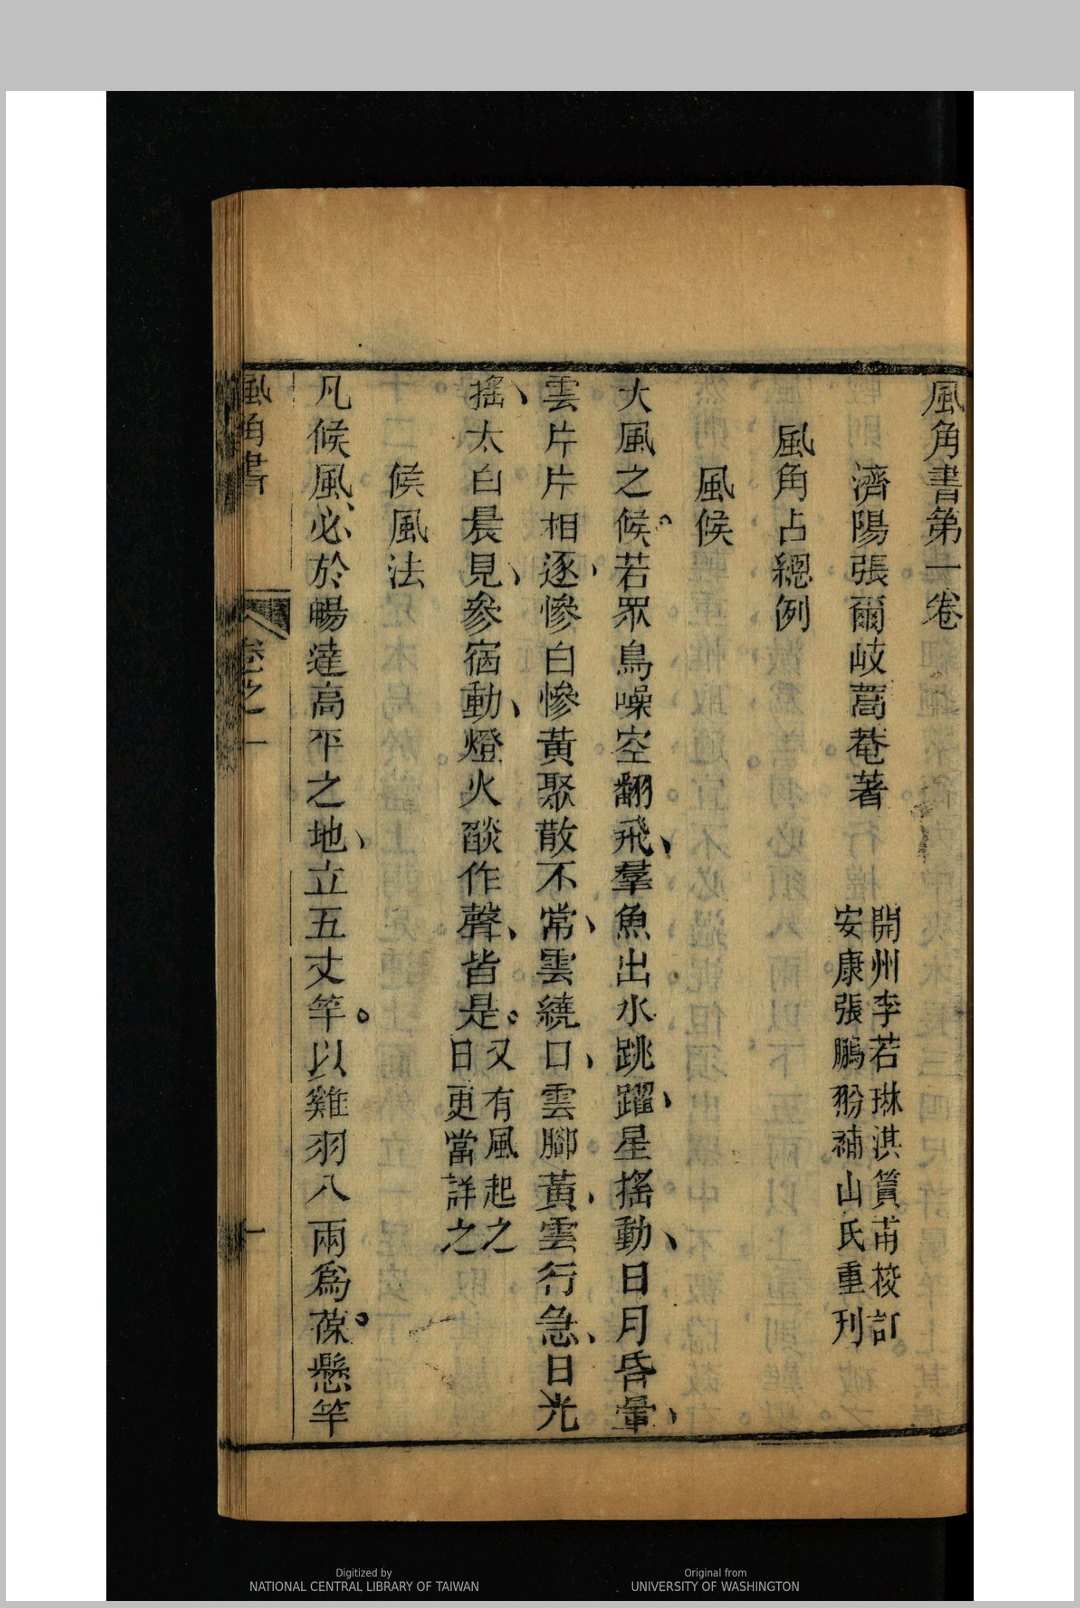 風角書第一卷
濟陽張爾岐蒿菴著
開州李若琳淇篔甫校訂
安康張鵬翂補山氏重刋
風角占總例
風候
大風之候。若眾鳥噪空翻飛、羣魚出水跳躍、星搖動、日月昏暈、
雲片片相逐、慘白慘黃聚散不常、雲繞口、雲腳黃、雲行急、日光
搖、太白晨見、參宿動、燈火燄作聲、皆是。又有風起之
日更當詳之
候風法
凡候風、必於暢達高平之地、立五丈竿。以雞羽八兩為葆。懸竿
風角書
卷之一
一
Digitized by
NATIONAL CENTRAL LIBRARY OF TAIWAN
Original from
UNIVERSITY OF WASHINGTON